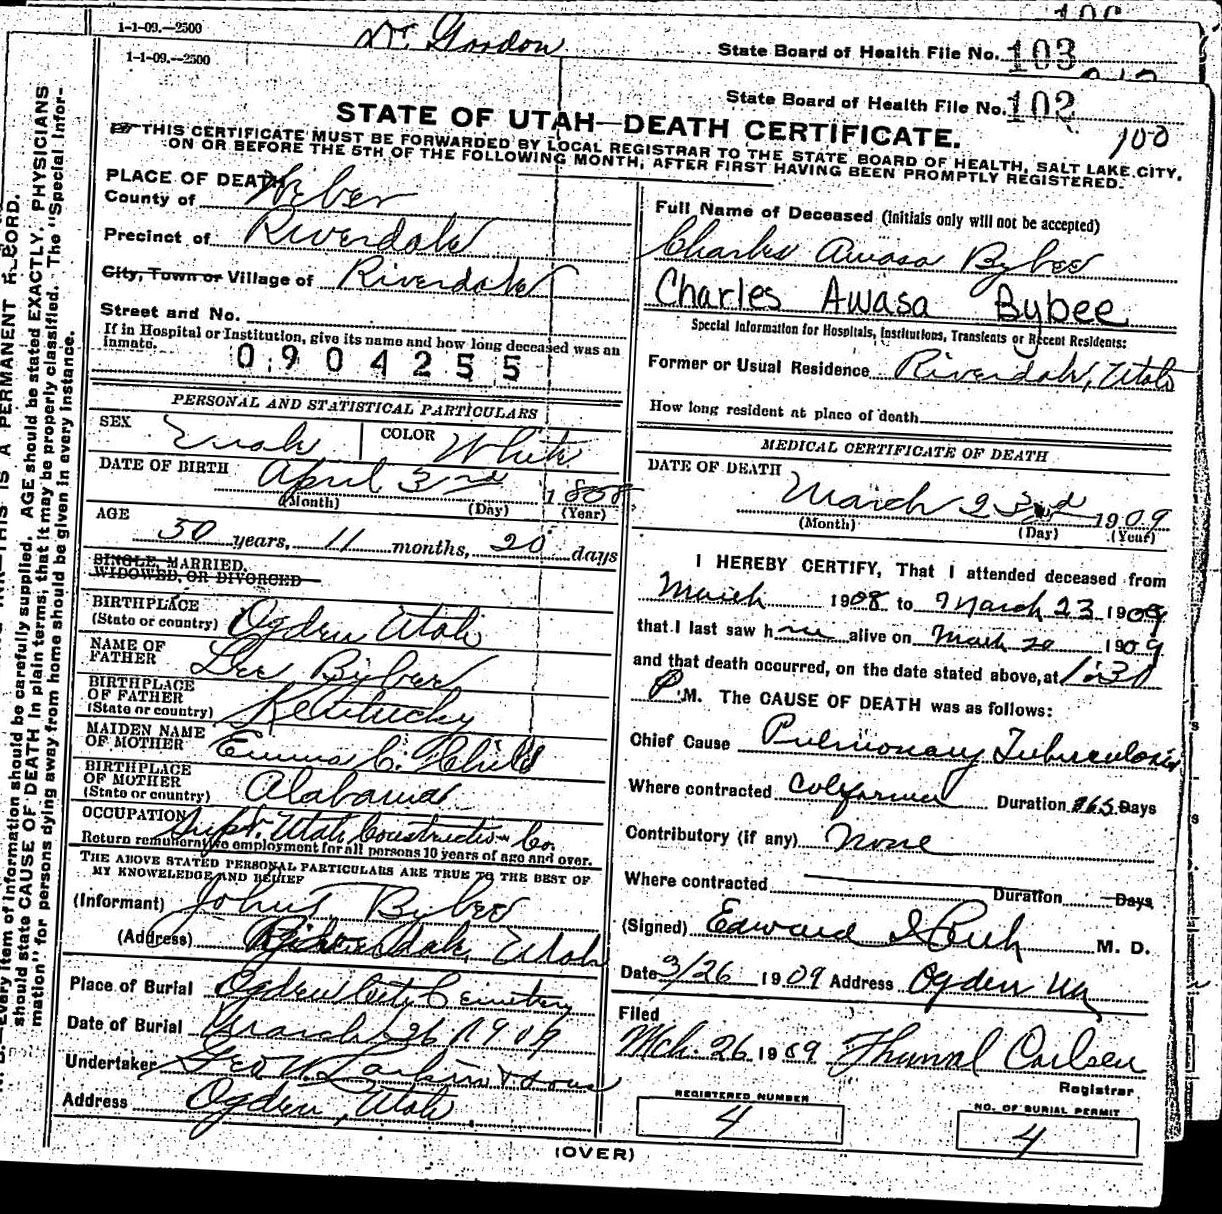 1-1-09.—2500
Dr. Gordon
State Board of Health File No. 103
1-1-09.—2500
State Board of Health File No. 102
100
STATE OF UTAH—DEATH CERTIFICATE.
THIS CERTIFICATE MUST BE FORWARDED BY LOCAL REGISTRAR TO THE STATE BOARD OF HEALTH, SALT LAKE CITY,
ON OR BEFORE THE 5TH OF THE FOLLOWING MONTH, AFTER FIRST HAVING BEEN PROMPTLY REGISTERED.
PLACE OF DEATH
County of Weber
Precinct of Riverdale
City, Town or Village of Riverdale
Street and No.
If in Hospital or Institution, give its name and how long deceased was an
inmate.
0904255
PERSONAL AND STATISTICAL PARTICULARS
SEX Male COLOR White
DATE OF BIRTH April 3rd 1858
(Month) (Day) (Year)
AGE
50 years, 11 months, 20 days
SINGLE, MARRIED,
WIDOWED, OR DIVORCED
BIRTHPLACE
(State or country) Ogden Utah
NAME OF
FATHER Lee Bybee
BIRTHPLACE
OF FATHER
(State or country) Kentucky
MAIDEN NAME
OF MOTHER Emma C. Child
BIRTHPLACE
OF MOTHER
(State or country) Alabama
OCCUPATION Supt. Utah Construction Co.
Return remunerative employment for all persons 10 years of age and over.
THE ABOVE STATED PERSONAL PARTICULARS ARE TRUE TO THE BEST OF
MY KNOWLEDGE AND BELIEF
(Informant) John T Bybee
(Address) Riverdale, Utah
Place of Burial Ogden City Cemetery
Date of Burial March 26 1909
Undertaker Geo W. Larkin & Sons
Address Ogden, Utah
Full Name of Deceased (Initials only will not be accepted)
Charles Awasa Bybee
Charles Awasa Bybee
Special Information for Hospitals, Institutions, Transients or Recent Residents:
Former or Usual Residence Riverdale, Utah
How long resident at place of death
MEDICAL CERTIFICATE OF DEATH
DATE OF DEATH
March 23rd 1909
(Month) (Day) (Year)
I HEREBY CERTIFY, That I attended deceased from
March 1908 to March 23 1909
that I last saw him alive on March 20 1909
and that death occurred, on the date stated above, at 1:30
P M. The CAUSE OF DEATH was as follows:
Chief Cause Pulmonary Tuberculosis
Where contracted California Duration 365 Days
Contributory (if any) None
Where contracted Duration Days
(Signed) Edward I Rich M. D.
Date 3/26 1909 Address Ogden Ut
Filed
Mch. 26 1909 Thurval Carlsen
Registrar
REGISTERED NUMBER
4
NO. OF BURIAL PERMIT
4
(OVER)
THIS IS A PERMANENT RECORD.
Every item of information should be carefully supplied. AGE should be stated EXACTLY. PHYSICIANS
should state CAUSE OF DEATH in plain terms, that it may be properly classified. The "Special Infor-
mation" for persons dying away from home should be given in every instance.